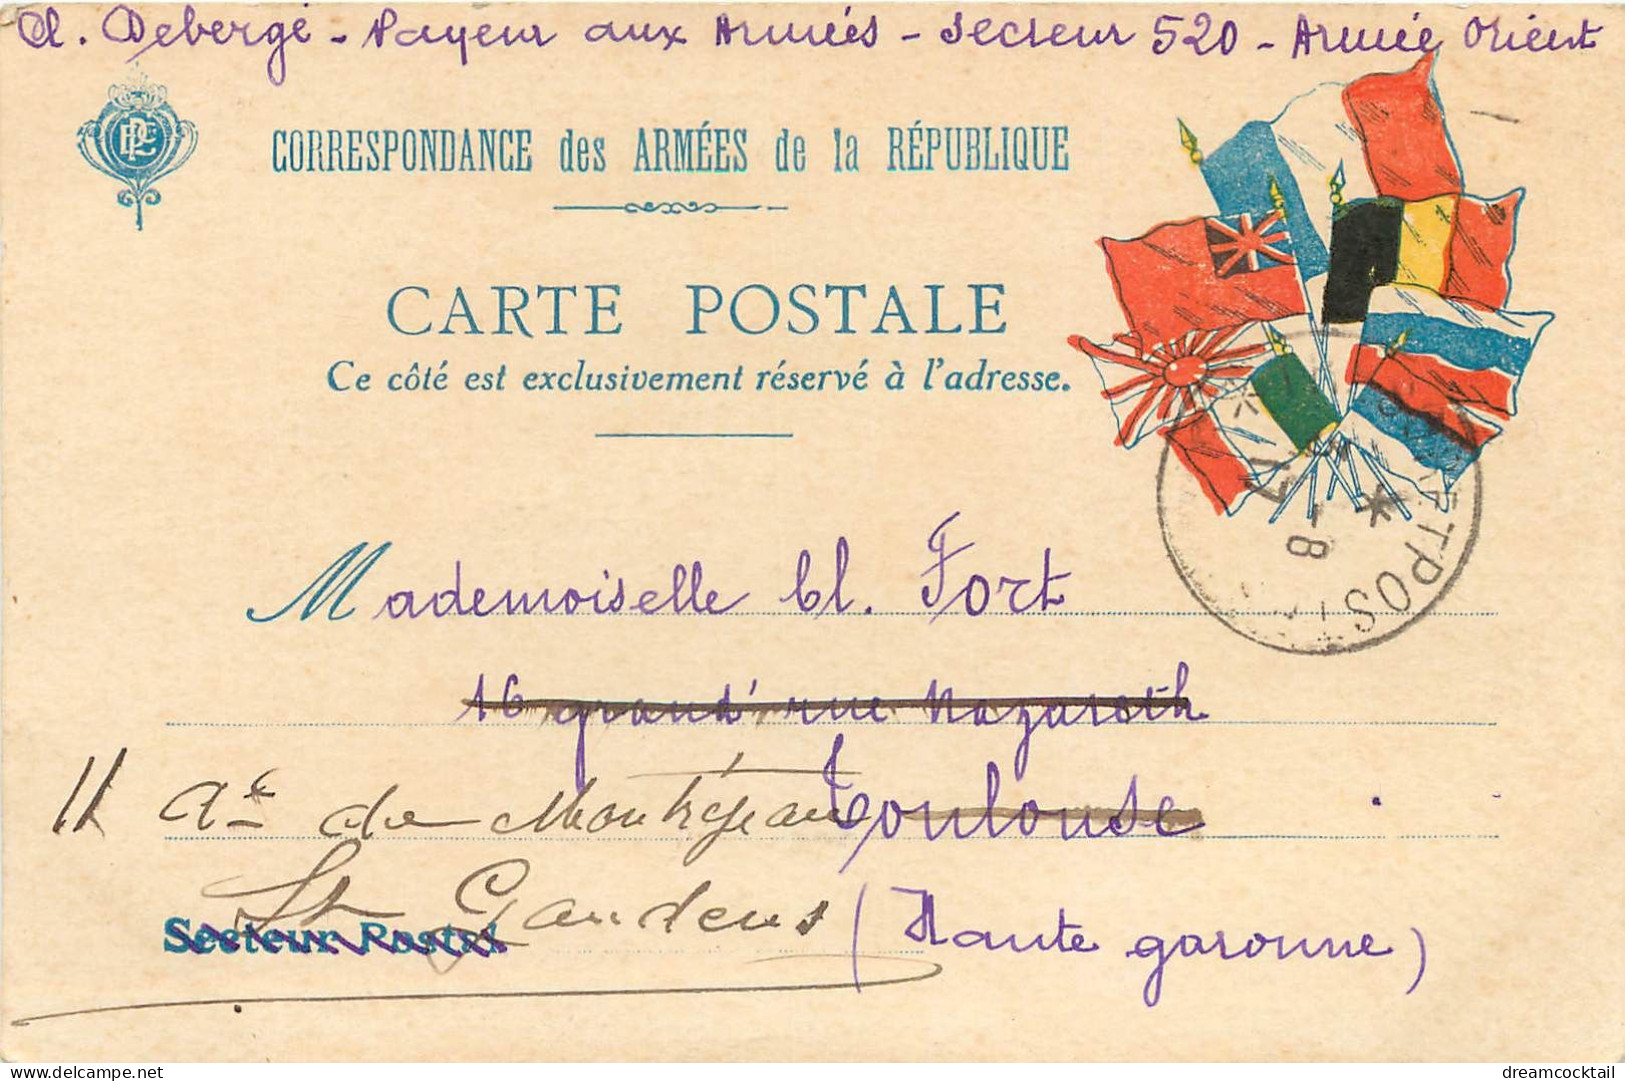 Cl. Debergé - Payeur aux Armées - Secteur 520 - Armée Orient
CORRESPONDANCE des ARMÉES de la RÉPUBLIQUE
CARTE POSTALE
Ce côté est exclusivement réservé à l'adresse.
8 - 17
POST
Mademoiselle Cl. Fort
16 grand' rue Nazareth
Toulouse
11 Ae de Montréjeau
St Gaudens (Haute garonne)
Secteur Postal
delcampe.net
dreamcocktail